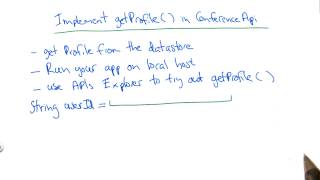 Implement getProfile() in ConferenceApi
- get Profile from the datastore
- Run your app on local host
- use APIs Explorer to try out getProfile()
String userId =